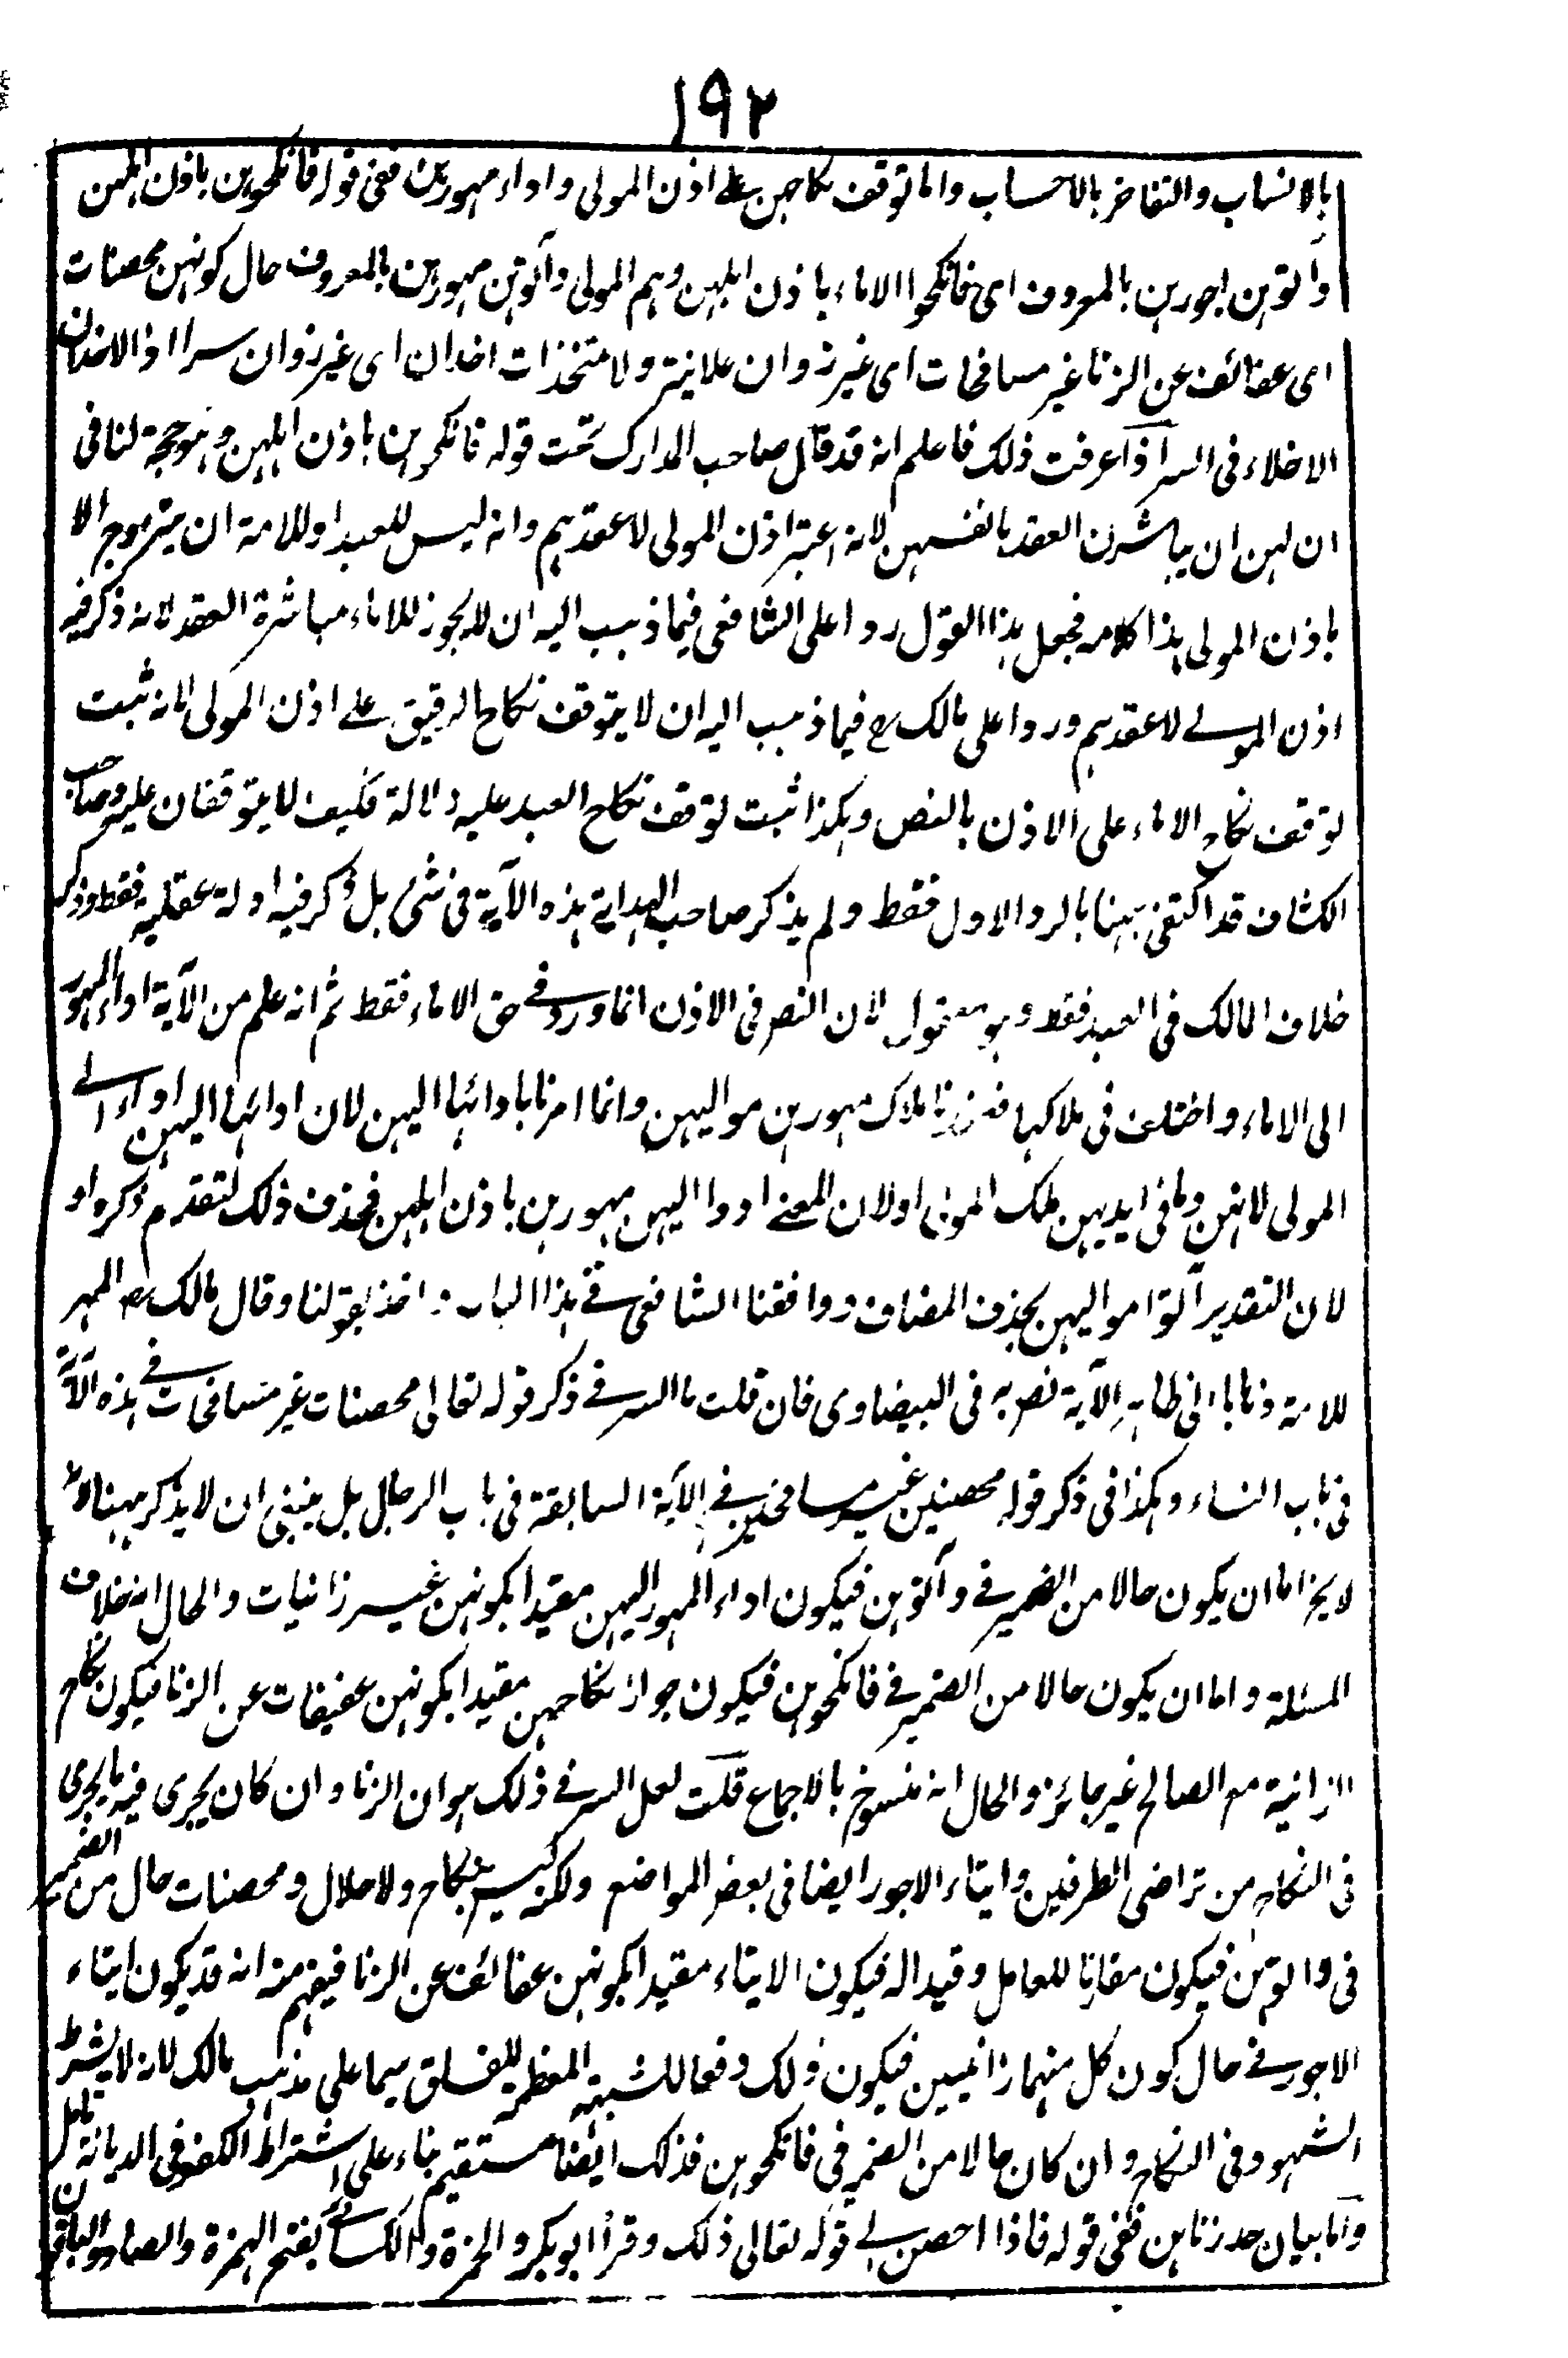 ١٩٢
بالانساب والتفاخر بالاحساب واما توقف نكاحهن على اذن المولى واداء مهورهن ففى قوله فانكحوهن باذن اهلهن
وآتوهن اجورهن بالمعروف اى فانكحوا الاماء باذن اهلهن وهم المولى وآتوهن مهورهن بالمعروف حال كونهن محصنات
اى عفائف عن الزنا غير مسافحات اى غير زوان علانية ولا متخذات اخدان اى غير زوان سرا اذ الاخدان
الاخلاء فى السر اذا عرفت ذلك فاعلم انه قد قال صاحب المدارك تحت قوله فانكحوهن باذن اهلهن وهو حجة لنا فى
ان لهن ان يباشرن العقد بانفسهن لانه اعتبر اذن المولى لا عقدهم وانه ليس للعبد او للامة ان يتزوج الا
باذن المولى هذا كلامه فجعل هذا القول ردا على الشافعى فيما ذهب اليه ان لا يجوز للاماء مباشرة العقد لانه ذكر فيه
اذن المولى لا عقدهم وردا على مالك رح فيما ذهب اليه ان لا يتوقف نكاح الرقيق على اذن المولى لانه ثبت
توقف نكاح الاماء على الاذن بالنص وهكذا ثبت توقف نكاح العبد عليه دلالة فكيف لا يتوقفان عليه وصاحب
الكشاف قد اكتفى ههنا بالرد الاول فقط ولم يذكر صاحب الهداية هذه الآية فى شئ بل ذكر فيه ادلة عقلية فقط وذكر
خلاف المالك فى العبد فقط وهو معقول لان النص فى الاذن انما ورد فى حق الاماء فقط ثم انه علم من الآية اداء المهور
الى الاماء واختلف فى ملاكها فعندنا ملاك مهورهن مواليهن وانما امرنا بادائها اليهن لان ادائها اليهن اداء الى
المولى لانهن وما فى ايديهن ملك المولى او لان المعنى ادوا اليهن مهورهن باذن اهلهن فحذف ذلك لتقدم ذكره او
لان التقدير آتوا مواليهن بحذف المضاف ووافقنا الشافعى فى هذا الباب واخذ بقولنا وقال مالك رح المهر
للامة ذهابا الى ظاهر الآية نص به فى البيضاوى فان قلت ما السر فى ذكر قوله تعالى محصنات غير مسافحات فى هذه الآية
فى باب النساء وهكذا فى ذكر قوله محصنين غير مسافحين فى الآية السابقة فى باب الرجال بل ينبغى ان لا يذكر ههنا لانه
لا يخ اما ان يكون حالا من الضمير فى وآتوهن فيكون اداء المهور اليهن مقيدا بكونهن غير زانيات والحال انه خلاف
المسئلة واما ان يكون حالا من الضمير فى فانكحوهن فيكون جواز نكاحهن مقيدا بكونهن عفيفات عن الزنا فيكون نكاح
الزانية مع الصالح غير جائز والحال انه منسوخ بالاجماع قلت لعل السر فى ذلك هو ان الزنا وان كان يجرى فيه ما يجرى
فى النكاح من تراضى الطرفين وايتاء الاجور ايضا فى بعض المواضع ولكن ليس بنكاح ولا حلال ومحصنات حال من الضمير
فى وآتوهن فيكون مقارنا للعامل وقيدا له فيكون الايتاء مقيدا بكونهن عفائف عن الزنا فيفهم منه انه قد يكون ايتاء
الاجور فى حال كون كل منهما زانيين فيكون ذلك دفعا لشبهة المعظمة للفساق سيما على مذهب مالك لانه لا يشترط
الشهود فى النكاح وان كان حالا من الضمير فى فانكحوهن فذلك ايضا مستقيم بناء على اشتراط الكفو فى الديانة تامل
واما بيان حد زناهن ففى قوله فاذا احصن الى قوله تعالى ذلك وقرأ ابو بكر والحمزة والكسائى بفتح الهمزة والصاد والباقون